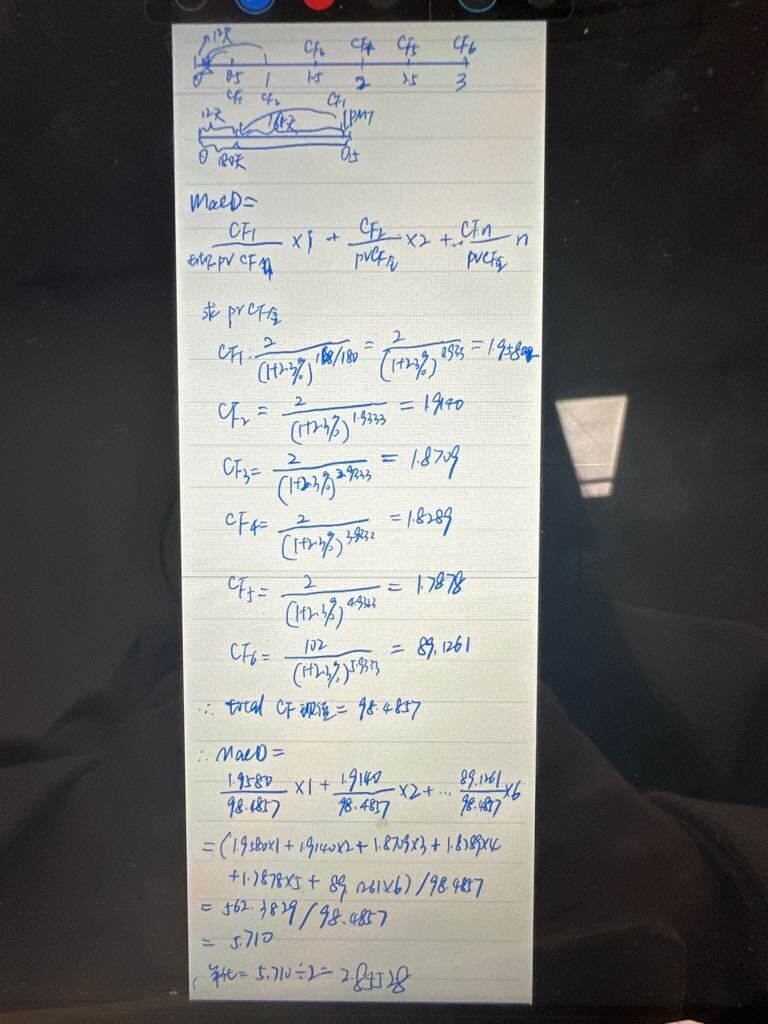 12天
CF₃ CF₄ CF₅ CF₆
0 0.5 1 1.5 2 2.5 3
CF₁ CF₂
CF₁
12天 168天 PMT
0 180天 0.5
MacD=
CF₁/PV CF ×1 + CF₂/PVCF全 ×2 + … CFn/PVCF全 n
求 PVCF全
CF₁: 2/(1+2.3%)^168/180 = 2/(1+2.3%)^0.933 = 1.9580
CF₂ = 2/(1+2.3%)^1.9333 = 1.9140
CF₃ = 2/(1+2.3%)^2.9333 = 1.8709
CF₄ = 2/(1+2.3%)^3.9333 = 1.8289
CF₅ = 2/(1+2.3%)^4.9333 = 1.7878
CF₆ = 102/(1+2.3%)^5.9333 = 89.1261
∴ total CF 现值 = 98.4857
∴ MacD =
1.9580/98.4857 ×1 + 1.9140/98.4857 ×2 + … 89.1261/98.4857 ×6
= (1.9580×1 + 1.9140×2 + 1.8709×3 + 1.8289×4
+1.7878×5 + 89.1261×6) / 98.4857
= 562.3829 / 98.4857
= 5.710
年化 = 5.710÷2 = 2.85528